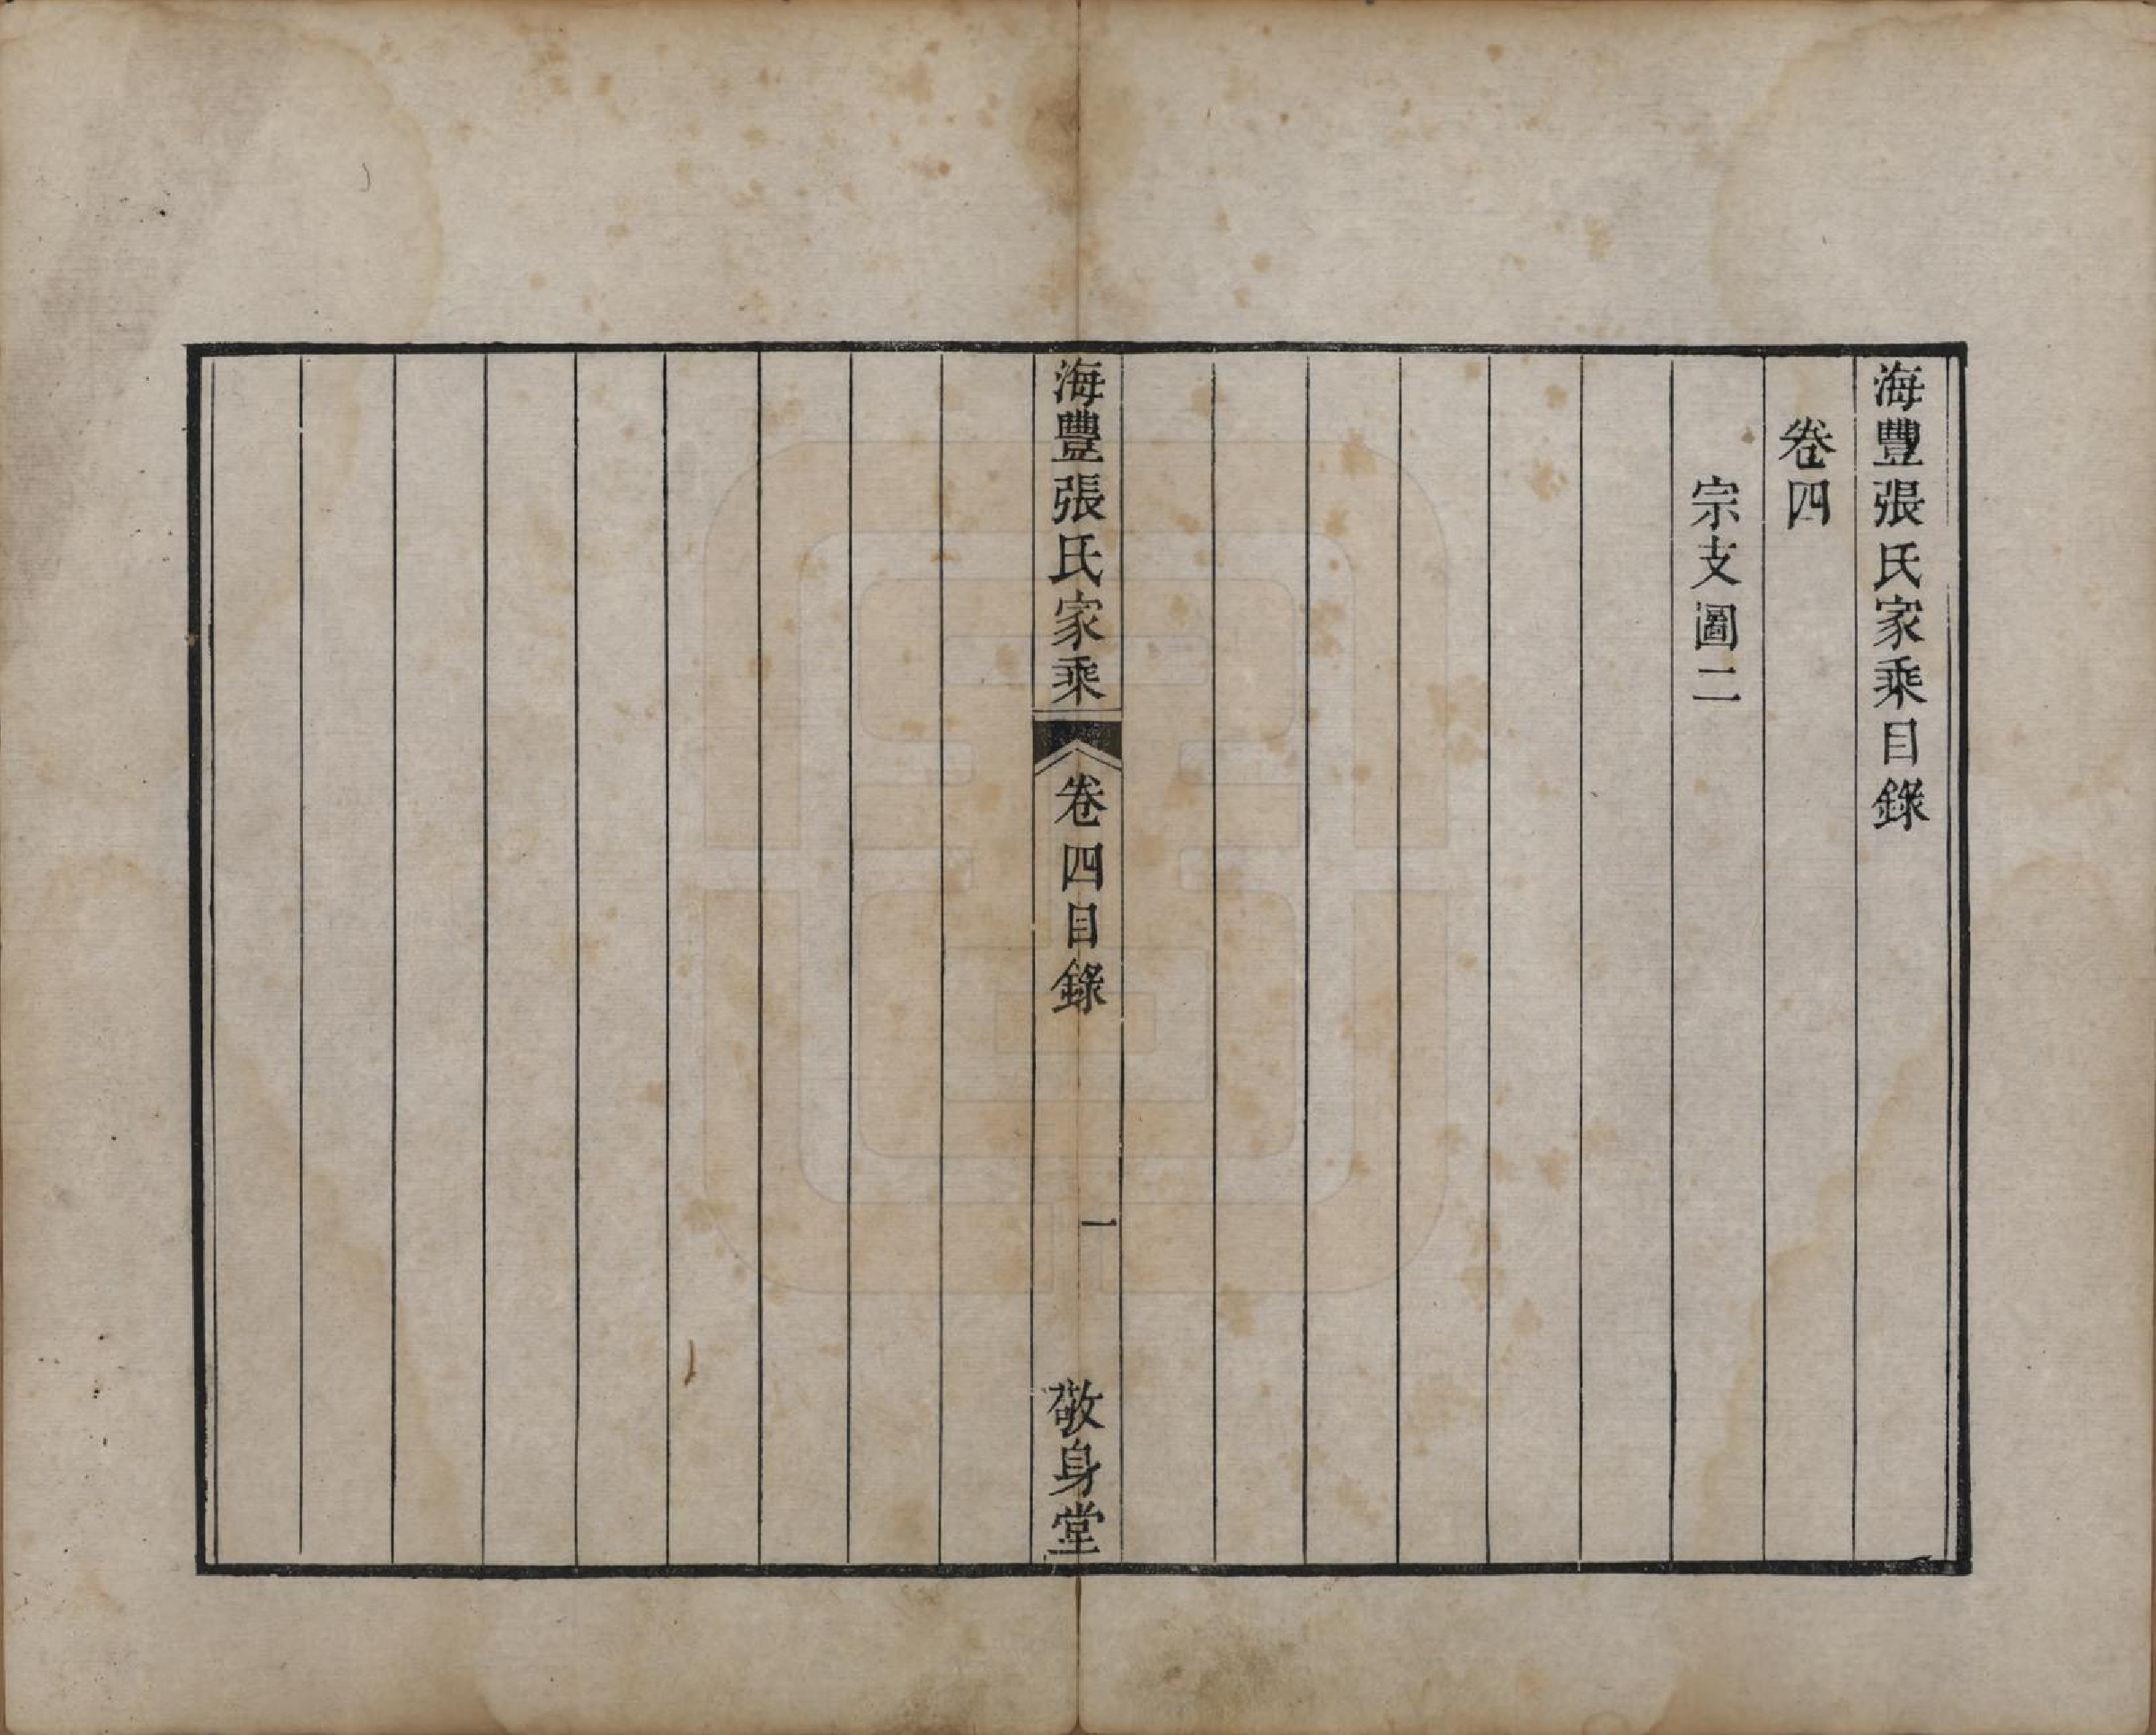 海豐張氏家乘目錄
卷四
宗支圖二
海豐張氏家乘
卷四目錄
一
敬身堂